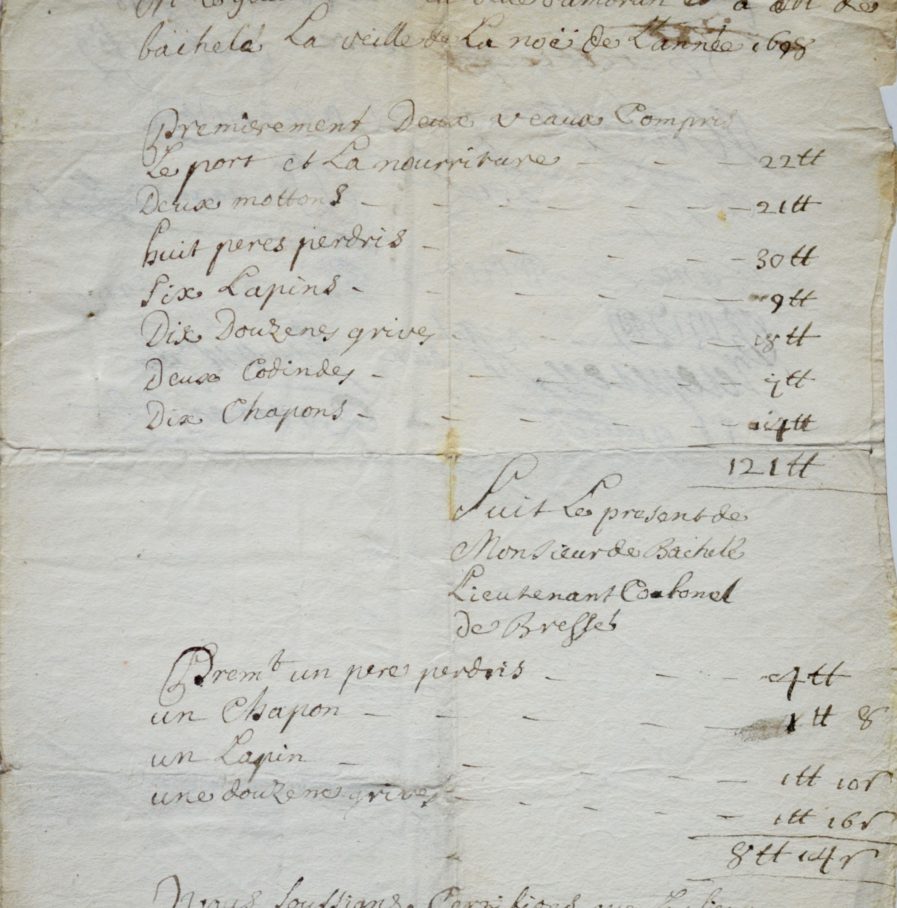 bachelé La veille de La noë de L'année 1698
Premierement Deux veaux Compris
Le port et La nourriture - - - 22tt
Deux mottons - - - - - - 21tt
huit peres perdris - - - - - 30tt
Six Lapins - - - - - - 9tt
Dix Douzenes grives - - - - 18tt
Deux Codindes - - - - - 7tt
Dix Chapons - - - - - 14tt
121tt
Suit Le present de
Monsieur de Bachelé
Lieutenant Colonel
de Bressé
Premt un pere perdris - - - 4tt
un Chapon - - - - - 1tt 8
un Lapin - - - - - 1tt 10s
une douzene grives - - - - 1tt 16s
8tt 14s
Nous soussigns Certifions que